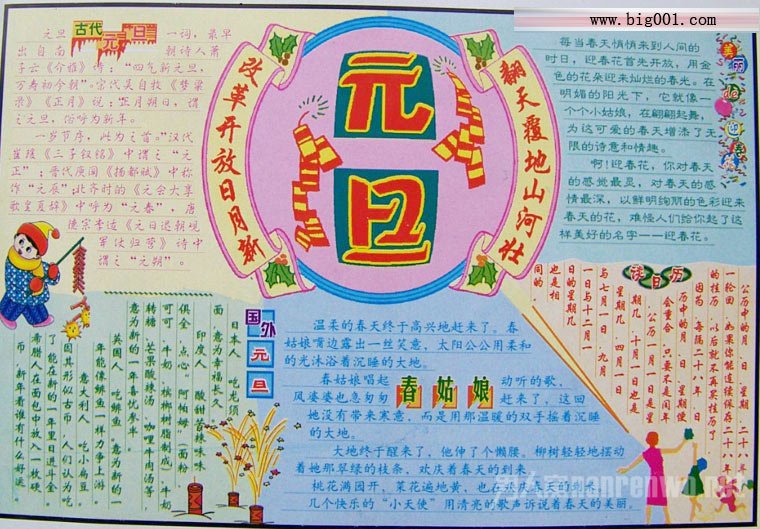 www.big001.com
元旦古代元旦一词，最早
出自南朝诗人萧
子云《介雅》诗："四气新元旦，
万寿初今朝"。宋代吴自牧《梦粱
录》《正月》说："正月朔日，谓
之元旦，俗呼为新年。
一岁节序，此为之首。"汉代
崔瑗《三子钗铭》中谓之"元
正"；晋代庾阐《扬都赋》中称
作"元辰"；北齐时的《元会大享
歌皇夏辞》中呼为"元春"；唐
德宗李适《元日退朝观
军仗归营》诗中
谓之"元朔"。
改革开放日月新
元旦
翻天覆地山河壮
美丽的迎春
每当春天悄悄来到人间的
时日，迎春花首先开放，用金
色的花朵迎来灿烂的春光。在
明媚的阳光下，它就像一
个个小姑娘，在翩翩起舞，
为这可爱的春天增添了无
限的诗意和情趣。
啊！迎春花，你对春天
的感觉最灵，对春天的感
情最深，以鲜明绚丽的色彩迎来
春天的花，难怪人们给你起了这
样美好的名字——迎春花。
谈日历
公历中的月、日、星期二十八年
一轮回，如果你能连续保存二十八年
的挂历，以后就不再买挂历了
因为，每隔二十八年，日
历中的月、日、星期便
会重合，只要不是闰年
公历一月一日是星
期几，十月一日也是
星期几，四月一日
与七月一日，九月
一日与十二月一
日的星期几
也是相
同的。
国外元旦
日本人：吃龙须
面，意为幸福长久
印度人：酸甜苦辣味味
俱全，点心，阿帕姆（面粉
可可，牛奶，槟榔树脂制成，牛奶
转糖，芒果酸辣汤，咖哩牛肉汤等，
意为新的一年喜忧参半。
英国人：吃鲱鱼，意为新的一
年能像鲱鱼一样力争上游
意大利人：吃小扁豆，
因其形似古钱，人们认为吃
了能在新的一年里日进斗金。
希腊人在面包中放入一枚硬
币，新年看谁有什么好运。
温柔的春天终于高兴地赶来了。春
姑娘嘴边露出一丝笑意，太阳公公用柔和
的光沐浴着沉睡的大地。
春姑娘唱起春姑娘动听的歌，
风婆婆也急匆匆赶来了，这回
她没有带来寒意，而是用那温暖的双手摇着沉睡
的大地。
大地终于醒来了，他伸了个懒腰。柳树轻轻地摆动
着她那翠绿的枝条，欢庆着春天的到来。
桃花满园开，菜花遍地黄，也在为春天的到来
几个快乐的"小天使"用清亮的歌声诉说着春天的美丽。
nanrenwo.net